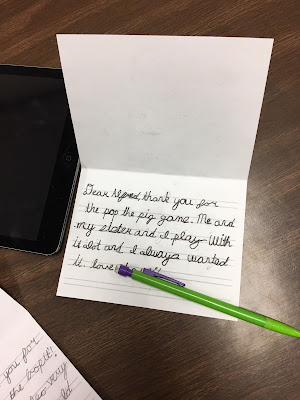 Dear Alfred, thank you for
the pop the pig game. Me and
my sister and I play with
it alot and I always wanted
it. love
you for
the
very